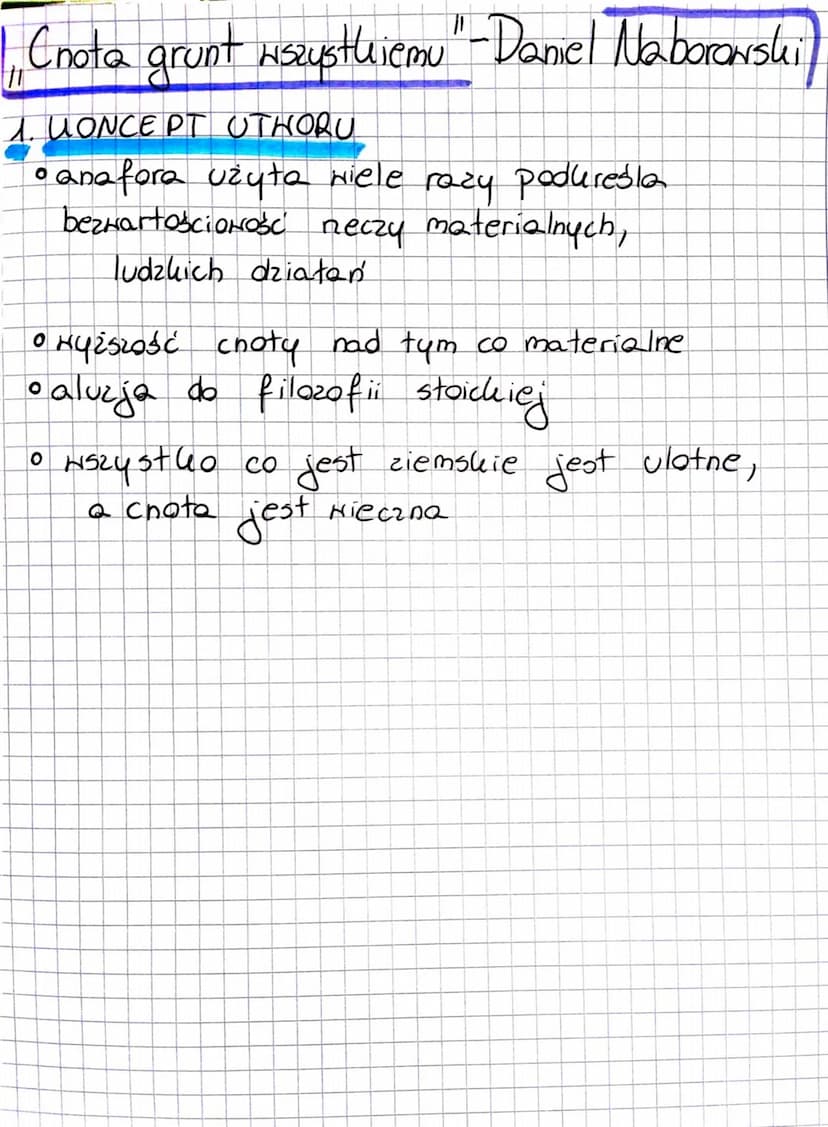 „Cnota grunt wszystkiemu" - Daniel Naborowski
1. KONCEPT UTWORU
• anafora użyta wiele razy podkreśla
bezwartościowość rzeczy materialnych,
ludzkich działań
• wyższość cnoty nad tym co materialne
• aluzja do filozofii stoickiej
• wszystko co jest ziemskie jest ulotne,
a cnota jest wieczna